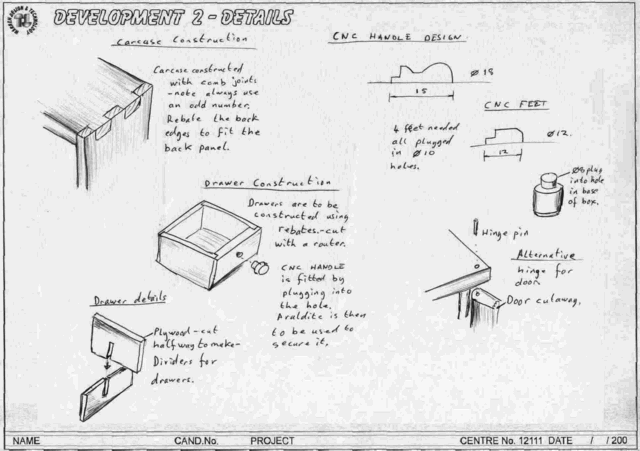 DEVELOPMENT 2 - DETAILS
Carcase Construction
Carcase constructed
with comb joints
-note always use
an odd number.
Rebate the back
edges to fit the
back panel.
CNC HANDLE DESIGN.
Ø 18
15
CNC FEET
4 feet needed
all plugged
in Ø 10
holes.
Ø 12.
12
plug
into hole
in base
of box.
Drawer Construction
Drawers are to be
constructed using
rebates-cut
with a router.
CNC HANDLE
is fitted by
plugging into
the hole.
Araldite is then
to be used to
secure it.
Hinge pin
Alternative
hinge for
door.
Door cutaway.
Drawer details
Plywood-cut
halfway to make-
Dividers for
drawers.
NAME CAND.No. PROJECT CENTRE No. 12111 DATE / /200